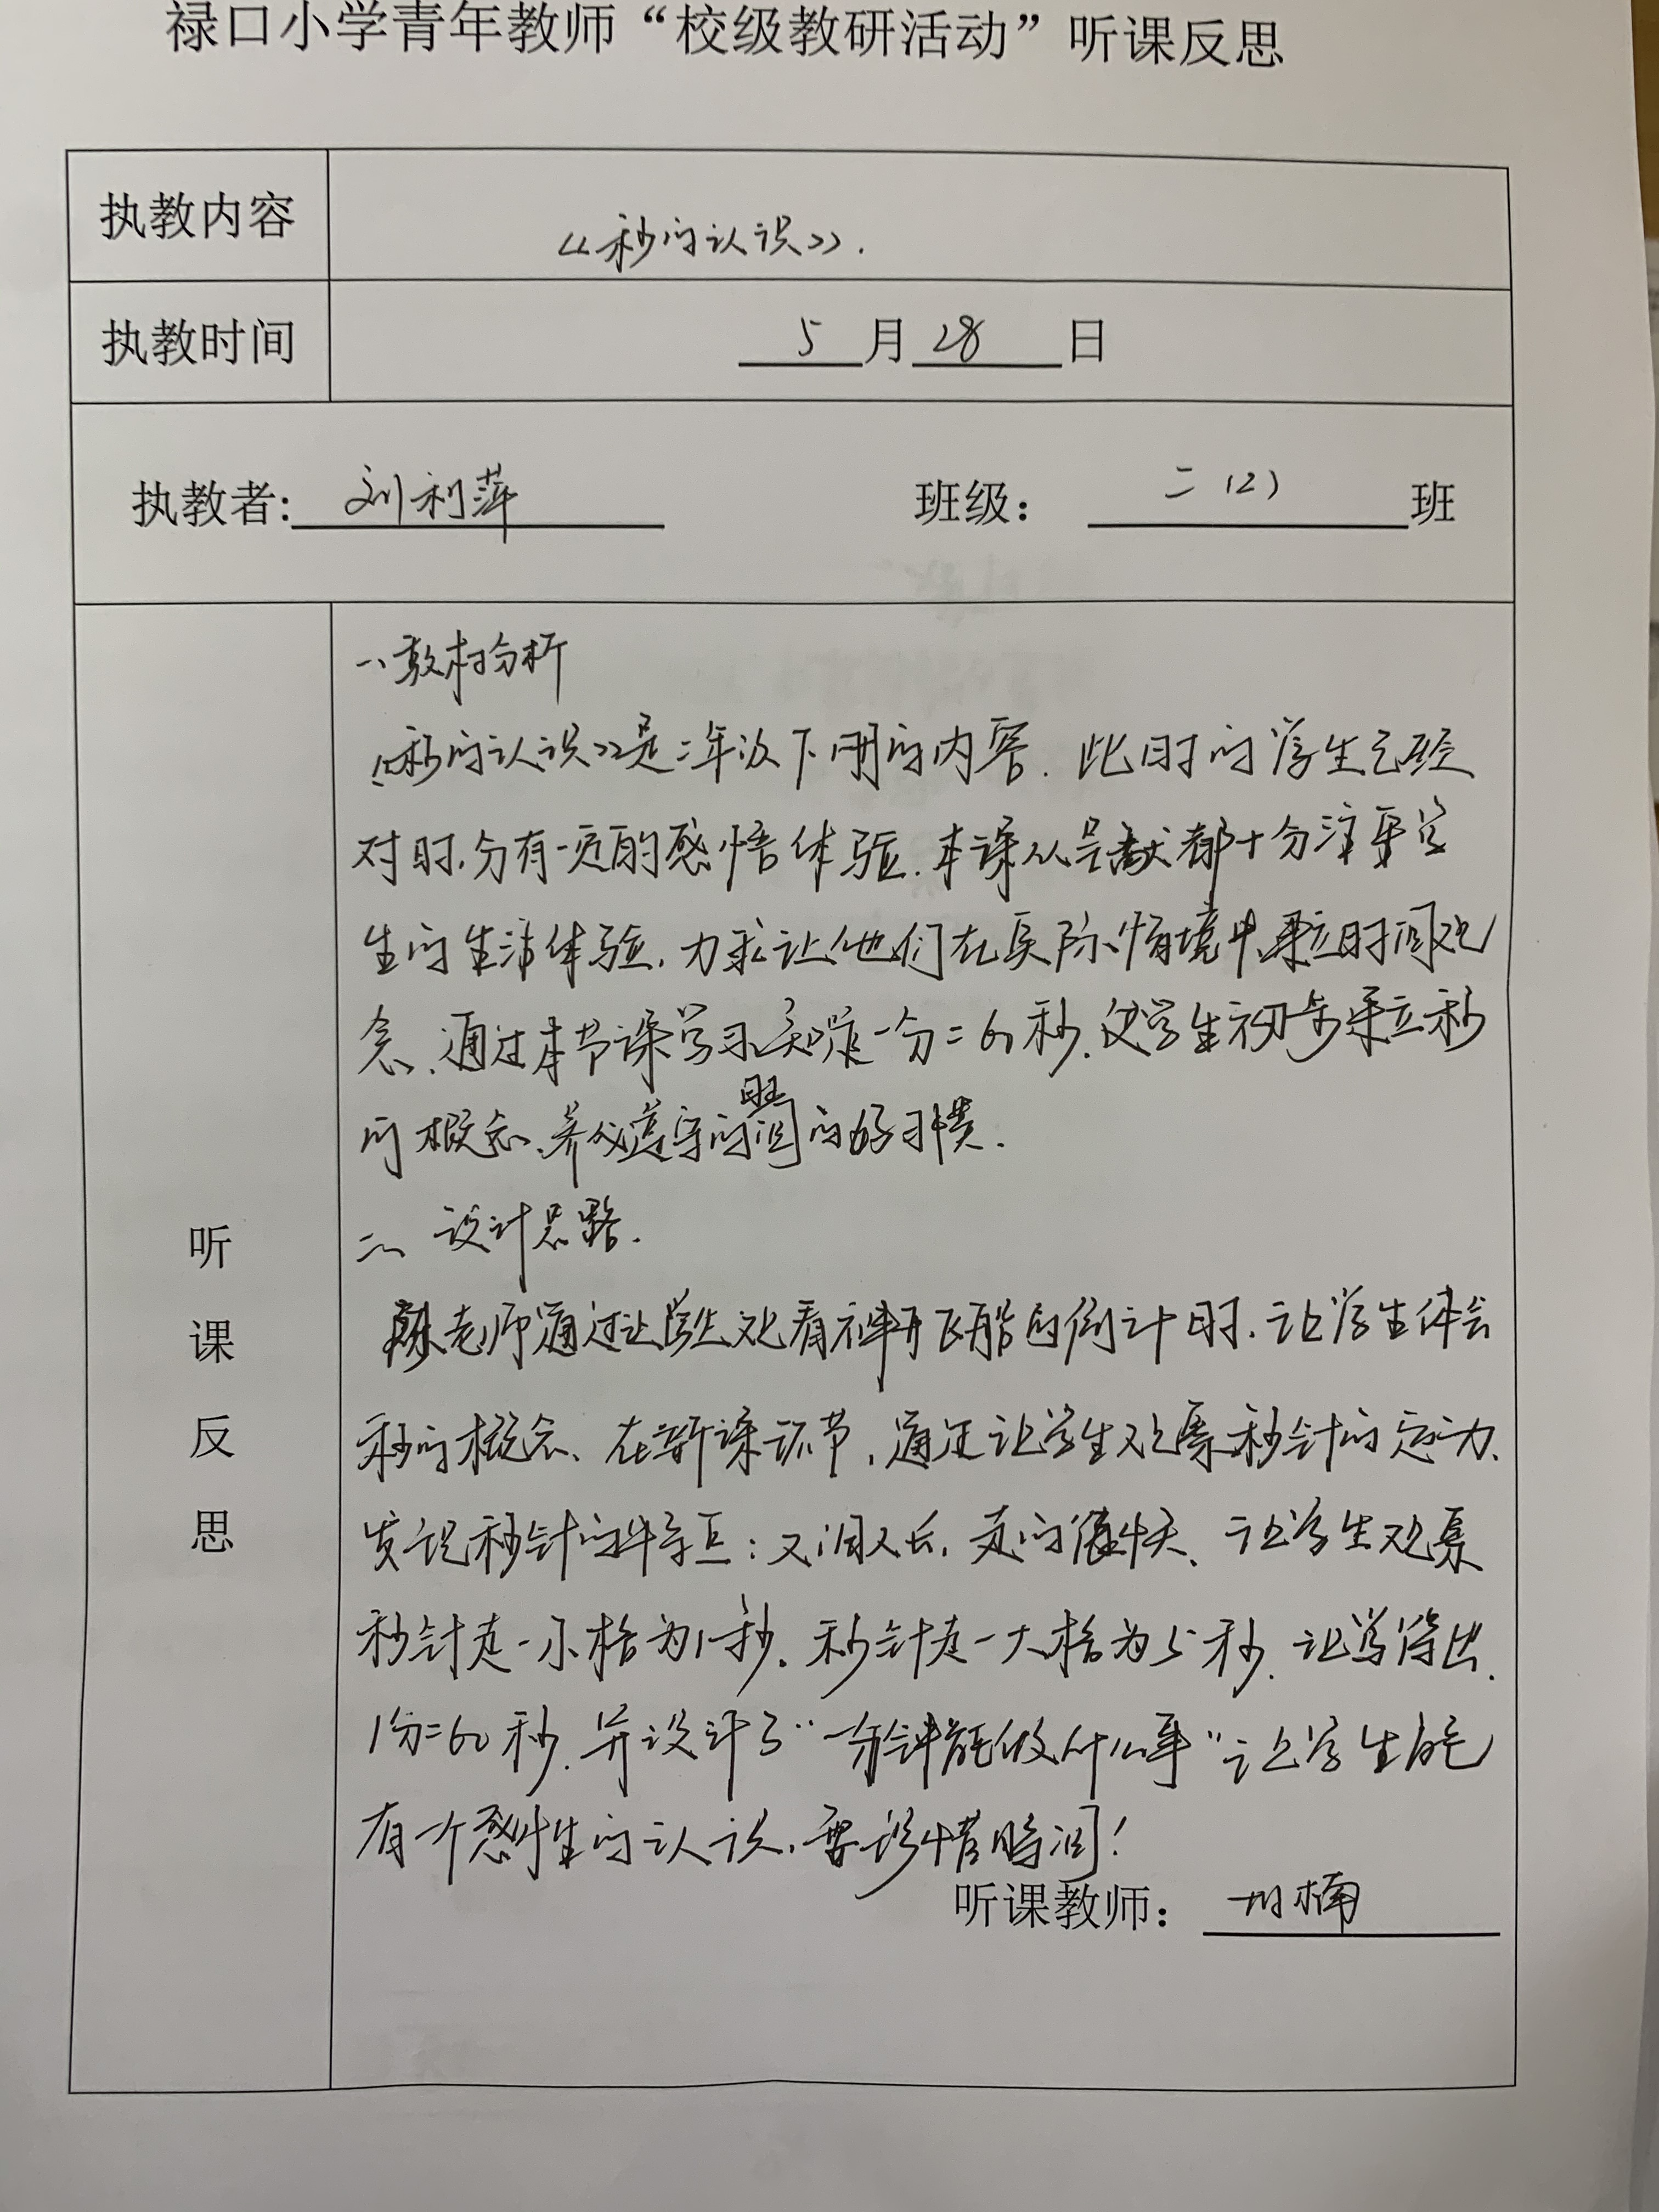 禄口小学青年教师“校级教研活动”听课反思
执教内容
《秒的认识》.
执教时间
5月28日
执教者:刘利萍 班级：二（2）班
听课反思
一、教材分析
《秒的认识》是二年级下册的内容. 此时的学生已经
对时、分有一定的感悟体验. 本课从呈都十分注重学
生的生活体验, 力求让他们在实际情境中建立时间观
念. 通过本节课学习知道一分=60秒. 使学生初步建立秒
的概念、养成遵守时间的好习惯.
二、设计思路.
老师通过让学生观看神舟飞船的倒计时, 让学生体会
秒的概念、在新课环节, 通过让学生观察秒针的走动、
发现秒针的特点: 又细又长, 走的很快、让学生观察
秒针走一小格为1秒. 秒针走一大格为5秒. 让学得出.
1分=60秒. 并设计了“一分钟能做什么事”让学生能
有一个感性的认识, 要珍惜时间!
听课教师： 楠